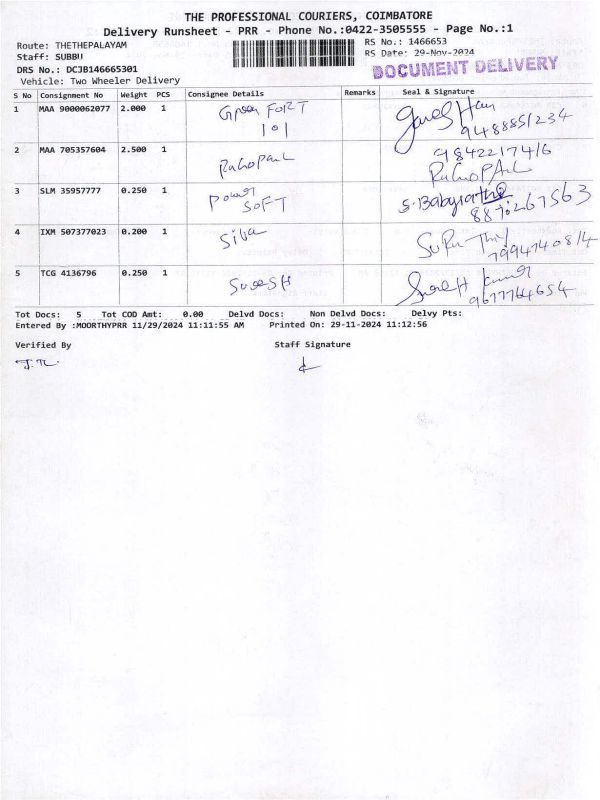 THE PROFESSIONAL COURIERS, COIMBATORE
Delivery Runsheet - PRR - Phone No.:0422-3505555 - Page No.:1
Route: THETHEPALAYAM
RS No.: 1466653
Staff: SUBBU
RS Date: 29-Nov-2024
DRS No.: DCJB146665301
DOCUMENT DELIVERY
Vehicle: Two Wheeler Delivery
S No Consignment No Weight PCS Consignee Details Remarks Seal & Signature
1 MAA 9000062077 2.000 1 FORT
101
2 MAA 705357604 2.500 1 9842217416
3 SLM 35957777 0.250 1 Power
SOFT
4 IXM 507377023 0.200 1 Siva
5 TCG 4136796 0.250 1 SureSH
9677764654
Tot Docs: 5 Tot COD Amt: 0.00 Delvd Docs: Non Delvd Docs: Delvy Pts:
Entered By :MOORTHYPRR 11/29/2024 11:11:55 AM Printed On: 29-11-2024 11:12:56
Verified By Staff Signature